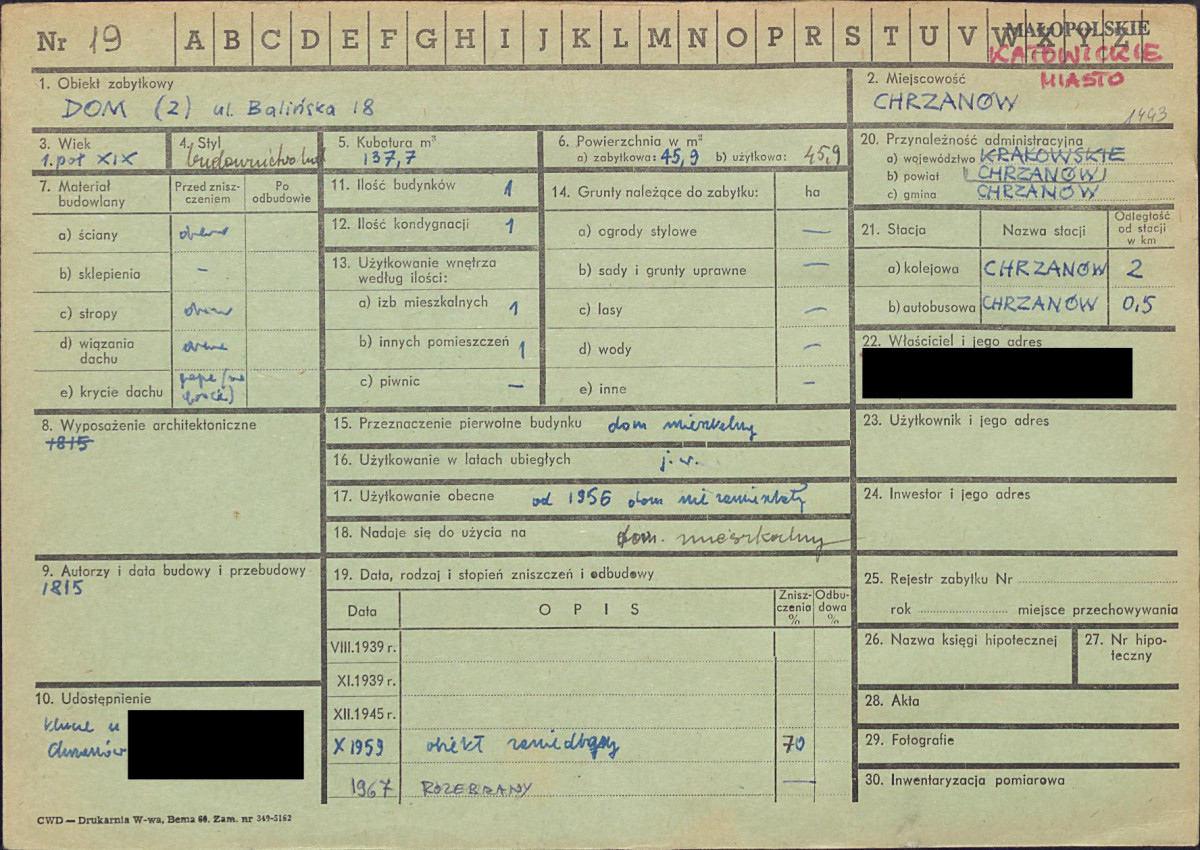 Nr 19 A B C D E F G H I J K L M N O P R S T U V W X Y Z
MAŁOPOLSKIE
KATOWICKIE
MIASTO
1. Obiekt zabytkowy
DOM (2) ul. Balińska 18
2. Miejscowość
CHRZANÓW
1443
3. Wiek
1. poł XIX
4. Styl
budownictwo lud
5. Kubatura m³
137,7
6. Powierzchnia w m²
a) zabytkowa: 45,9 b) użytkowa: 45,9
7. Materiał budowlany
Przed zniszczeniem
Po odbudowie
a) ściany drewno
b) sklepienia –
c) stropy drewno
d) wiązania dachu drewno
e) krycie dachu papa
8. Wyposażenie architektoniczne
1815
9. Autorzy i data budowy i przebudowy
1815
10. Udostępnienie
klucze u
Chrzanów
11. Ilość budynków 1
12. Ilość kondygnacji 1
13. Użytkowanie wnętrza
według ilości:
a) izb mieszkalnych 1
b) innych pomieszczeń 1
c) piwnic —
14. Grunty należące do zabytku: ha
a) ogrody stylowe —
b) sady i grunty uprawne —
c) lasy —
d) wody —
e) inne —
15. Przeznaczenie pierwotne budynku dom mieszkalny
16. Użytkowanie w latach ubiegłych j.w.
17. Użytkowanie obecne od 1956 dom niezamieszkały
18. Nadaje się do użycia na dom. mieszkalny
19. Data, rodzaj i stopień zniszczeń i odbudowy
Data OPIS Zniszczenia % Odbudowa %
VIII.1939 r.
XI.1939 r.
XII.1945 r.
X 1959 obiekt zaniedbany 70
1967 ROZEBRANY —
20. Przynależność administracyjna
a) województwo KRAKOWSKIE
b) powiat CHRZANÓW
c) gmina CHRZANÓW
21. Stacja Nazwa stacji Odległość od stacji w km
a) kolejowa CHRZANÓW 2
b) autobusowa CHRZANÓW 0,5
22. Właściciel i jego adres
23. Użytkownik i jego adres
24. Inwestor i jego adres
25. Rejestr zabytku Nr
rok miejsce przechowywania
26. Nazwa księgi hipotecznej
27. Nr hipoteczny
28. Akta
29. Fotografie
30. Inwentaryzacja pomiarowa
CWD — Drukarnia W-wa, Bema 60. Zam. nr 349-5162